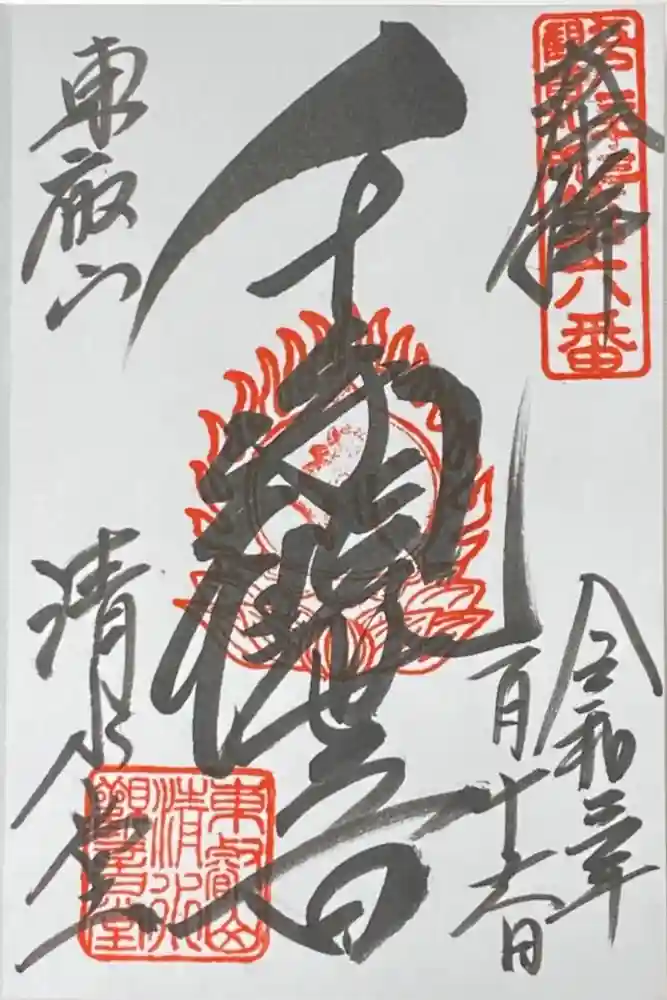 奉拝
六番
令和三年
月十六日
千手観世音
東叡山
清水堂
東叡山
清水
観音堂